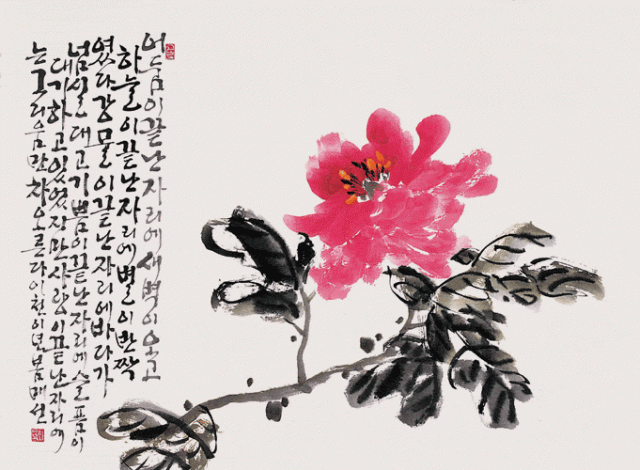 어둠이끝난자리에새벽이오고
하늘이끝난자리에별이반짝
였다강물이끝난자리에바다가
넘실대고기쁨이끝난자리에슬픔이
대기하고있었지만사랑이끝난자리에
는그리움만차오른다이천이년봄